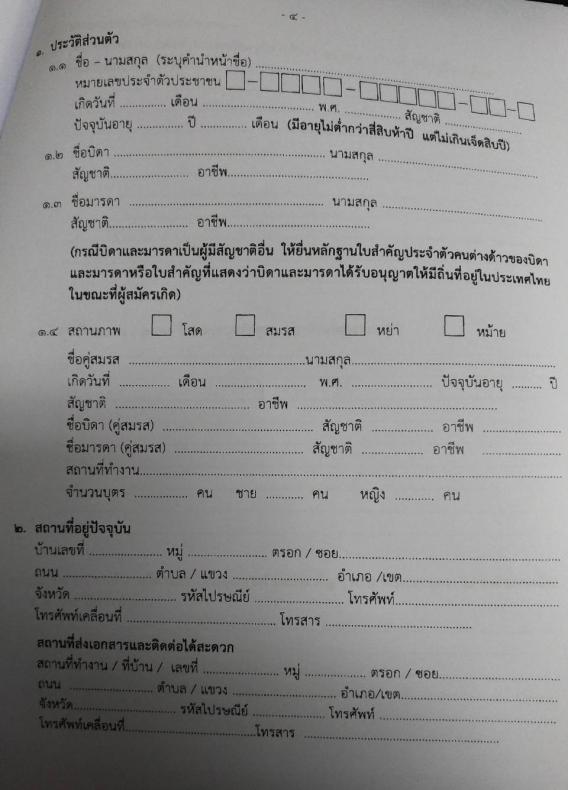 - ๔ -
๑. ประวัติส่วนตัว
๑.๑ ชื่อ – นามสกุล (ระบุคำนำหน้าชื่อ) ........................................
หมายเลขประจำตัวประชาชน □–□□□□–□□□□□–□□–□
เกิดวันที่ ............ เดือน ............................ พ.ศ. .............. สัญชาติ ....................
ปัจจุบันอายุ .............. ปี ............ เดือน (มีอายุไม่ต่ำกว่าสี่สิบห้าปี แต่ไม่เกินเจ็ดสิบปี)
๑.๒ ชื่อบิดา ........................................ นามสกุล ........................................
สัญชาติ.................... อาชีพ....................................
๑.๓ ชื่อมารดา ........................................ นามสกุล ........................................
สัญชาติ.................... อาชีพ....................................
(กรณีบิดาและมารดาเป็นผู้มีสัญชาติอื่น ให้ยื่นหลักฐานใบสำคัญประจำตัวคนต่างด้าวของบิดา
และมารดาหรือใบสำคัญที่แสดงว่าบิดาและมารดาได้รับอนุญาตให้มีถิ่นที่อยู่ในประเทศไทย
ในขณะที่ผู้สมัครเกิด)
๑.๔ สถานภาพ □ โสด □ สมรส □ หย่า □ หม้าย
ชื่อคู่สมรส ........................................นามสกุล........................................
เกิดวันที่ ............ เดือน ........................ พ.ศ. ........................ ปัจจุบันอายุ ........ ปี
สัญชาติ ................................ อาชีพ ........................................
ชื่อบิดา (คู่สมรส) ................................ สัญชาติ .............. อาชีพ ....................
ชื่อมารดา (คู่สมรส) ................................ สัญชาติ .............. อาชีพ ....................
สถานที่ทำงาน................................................................................
จำนวนบุตร .............. คน ชาย .......... คน หญิง .......... คน
๒. สถานที่อยู่ปัจจุบัน
บ้านเลขที่ .................... หมู่ .................... ตรอก / ซอย........................................
ถนน ........................ ตำบล / แขวง ........................ อำเภอ /เขต................................
จังหวัด ........................ รหัสไปรษณีย์ ........................ โทรศัพท์................................
โทรศัพท์เคลื่อนที่ ........................................ โทรสาร ....................................
สถานที่ส่งเอกสารและติดต่อได้สะดวก
สถานที่ทำงาน / ที่บ้าน / เลขที่ .................... หมู่ ................ ตรอก / ซอย............................
ถนน ........................ ตำบล / แขวง ............................ อำเภอ/เขต................................
จังหวัด............................ รหัสไปรษณีย์ .................... โทรศัพท์ ................................
โทรศัพท์เคลื่อนที่................................โทรสาร ........................................